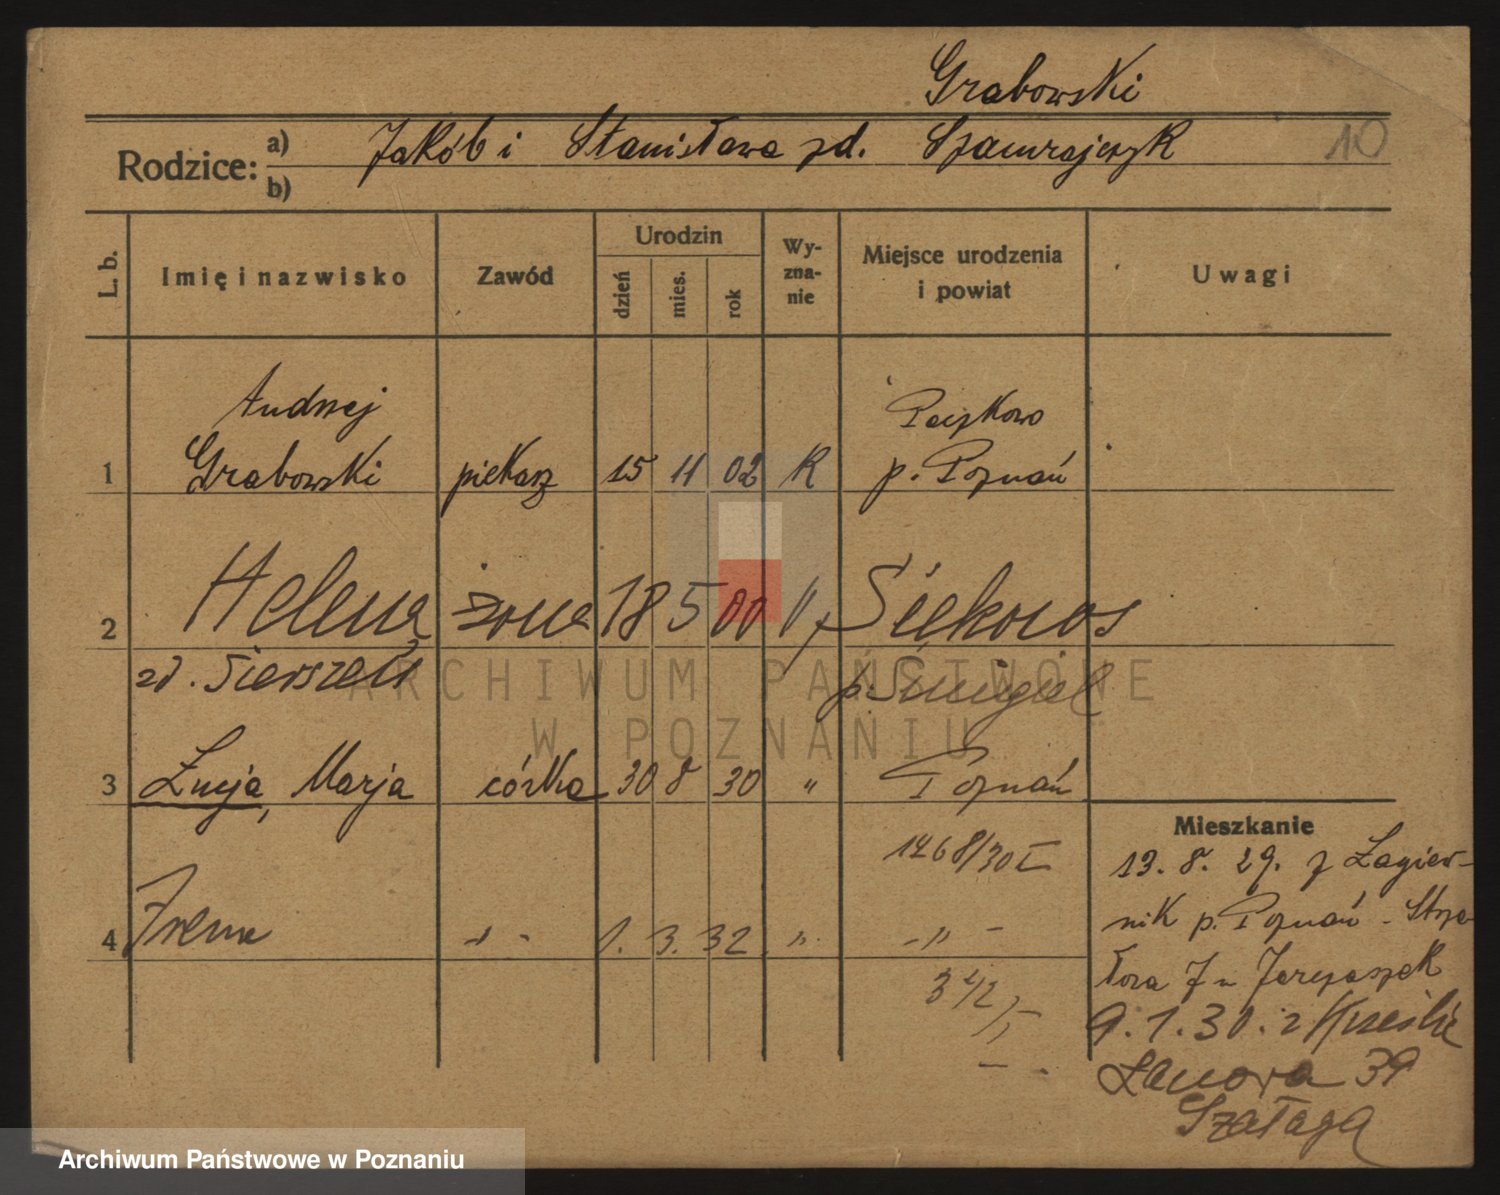 Grabowski
Rodzice: a) Jakób i Stanisława zd. Szamrajczyk
10
b)
L. b.
Imię i nazwisko
Zawód
Urodzin
dzień
mies.
rok
Wy-
zna-
nie
Miejsce urodzenia
i powiat
Uwagi
Andrzej
Paczkowo
1 Grabowski piekarz 15 11 02 R p. Poznań
2 Helena żona 18 5 00 "
zd. p. Śmigiel
3 Łucja, Marja córka 30 8 30 " Poznań
1468/30 I
4 Irena -"- 1. 3. 32 " -"-
Mieszkanie
13. 8. 29. z Łagiew-
nik p. Poznań - Strza-
łowa 7 u
9. 1. 30. z
39
Szałaga
ARCHIWUM PAŃSTWOWE
W POZNANIU
Archiwum Państwowe w Poznaniu